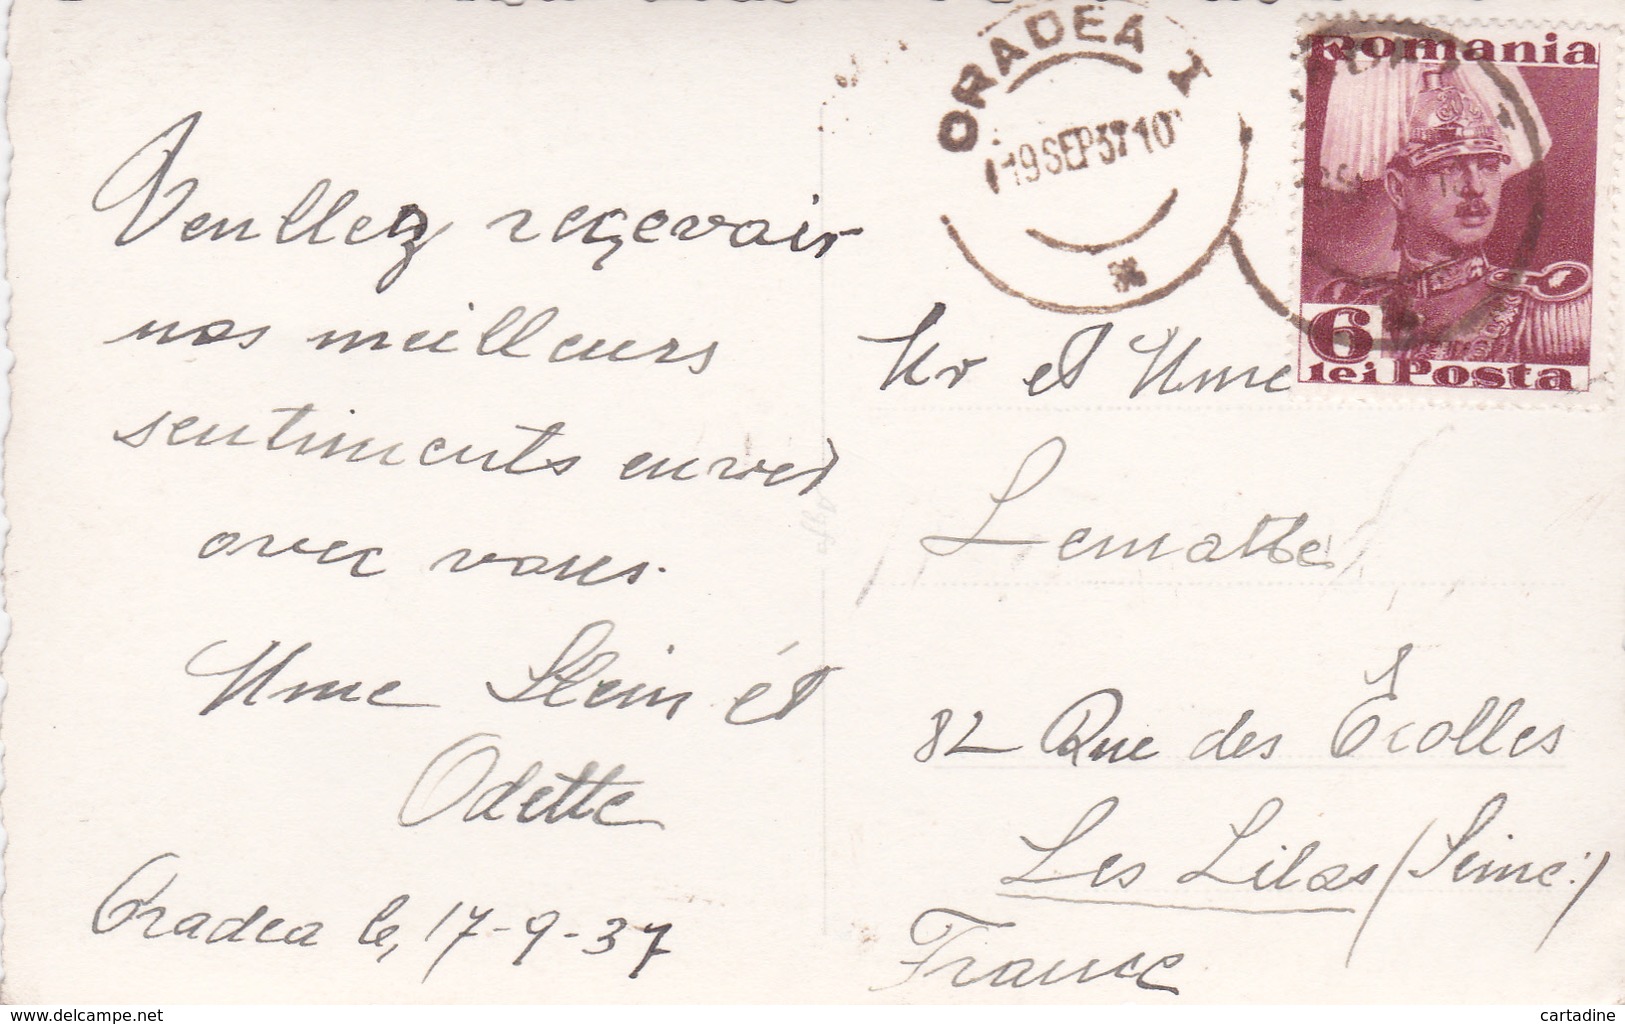 Veullez reçevair
nos meilleurs
sentiments
avec vous.
Mme Stein ét
Odette
Oradea le, 17-9-37
ORADEA I
19 SEP 37 10
Romania
6
lei Posta
Mr et Mme
Lematte
82 Rue des Écolles
Les Lilas (Seine.)
France
www.delcampe.net
cartadine